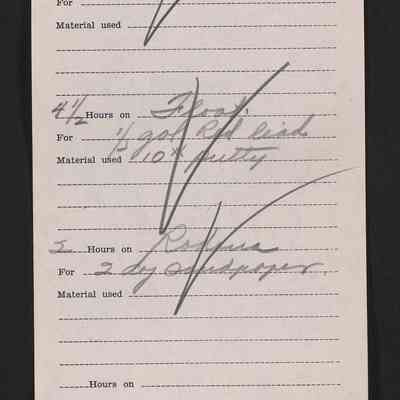 For
Material used
4 1/2 Hours on Float
For 1/2 gal Red lead
Material used 10# putty
2 Hours on
For 2 doz Sandpaper
Material used
Hours on